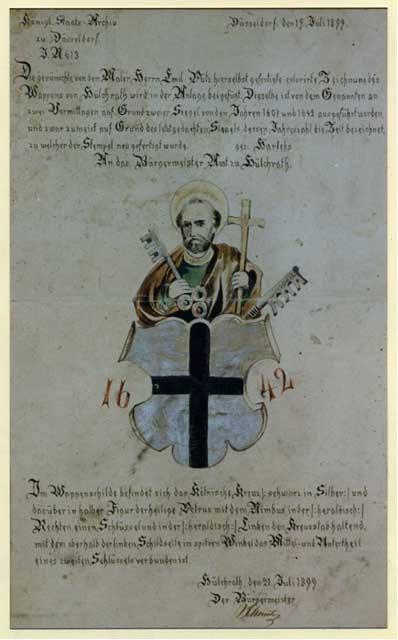 Königl. Staats-Archiv
Düsseldorf, den 19. Juli 1899.
zu Düsseldorf.
J. № 613
Die gewünschte von dem Maler, Herrn Emil Pütz hierselbst gefertigte colorirte Zeichnung des
Wappens von Hülchrath wird in der Anlage beigefügt. Dieselbe ist von dem Genannten an
zwei Vormittagen auf Grund zweier Siegel von den Jahren und 1642 ausgeführt worden
und zwar zumeist auf Grund des letztgedachten Siegels, dessen Jahreszahl die Zeit bezeichnet,
zu welcher der Stempel neu gefertigt wurde. gez. Harleß
An das Bürgermeister Amt zu Hülchrath.
16 42
Im Wappenschilde befindet sich das Kölnische Kreuz /:schwarz in Silber:/ und
darüber in halber Figur der heilige Petrus mit dem Nimbus in der /:heraldisch:/
Rechten einen Schlüssel und in der /:heraldisch:/ Linken den Kreuzstab haltend,
mit dem oberhalb der linken Schildseite im spitzen Winkel das Mittel- und Untertheil
eines zweiten Schlüssels verbunden ist.
Hülchrath, den 21. Juli 1899
Der Bürgermeister